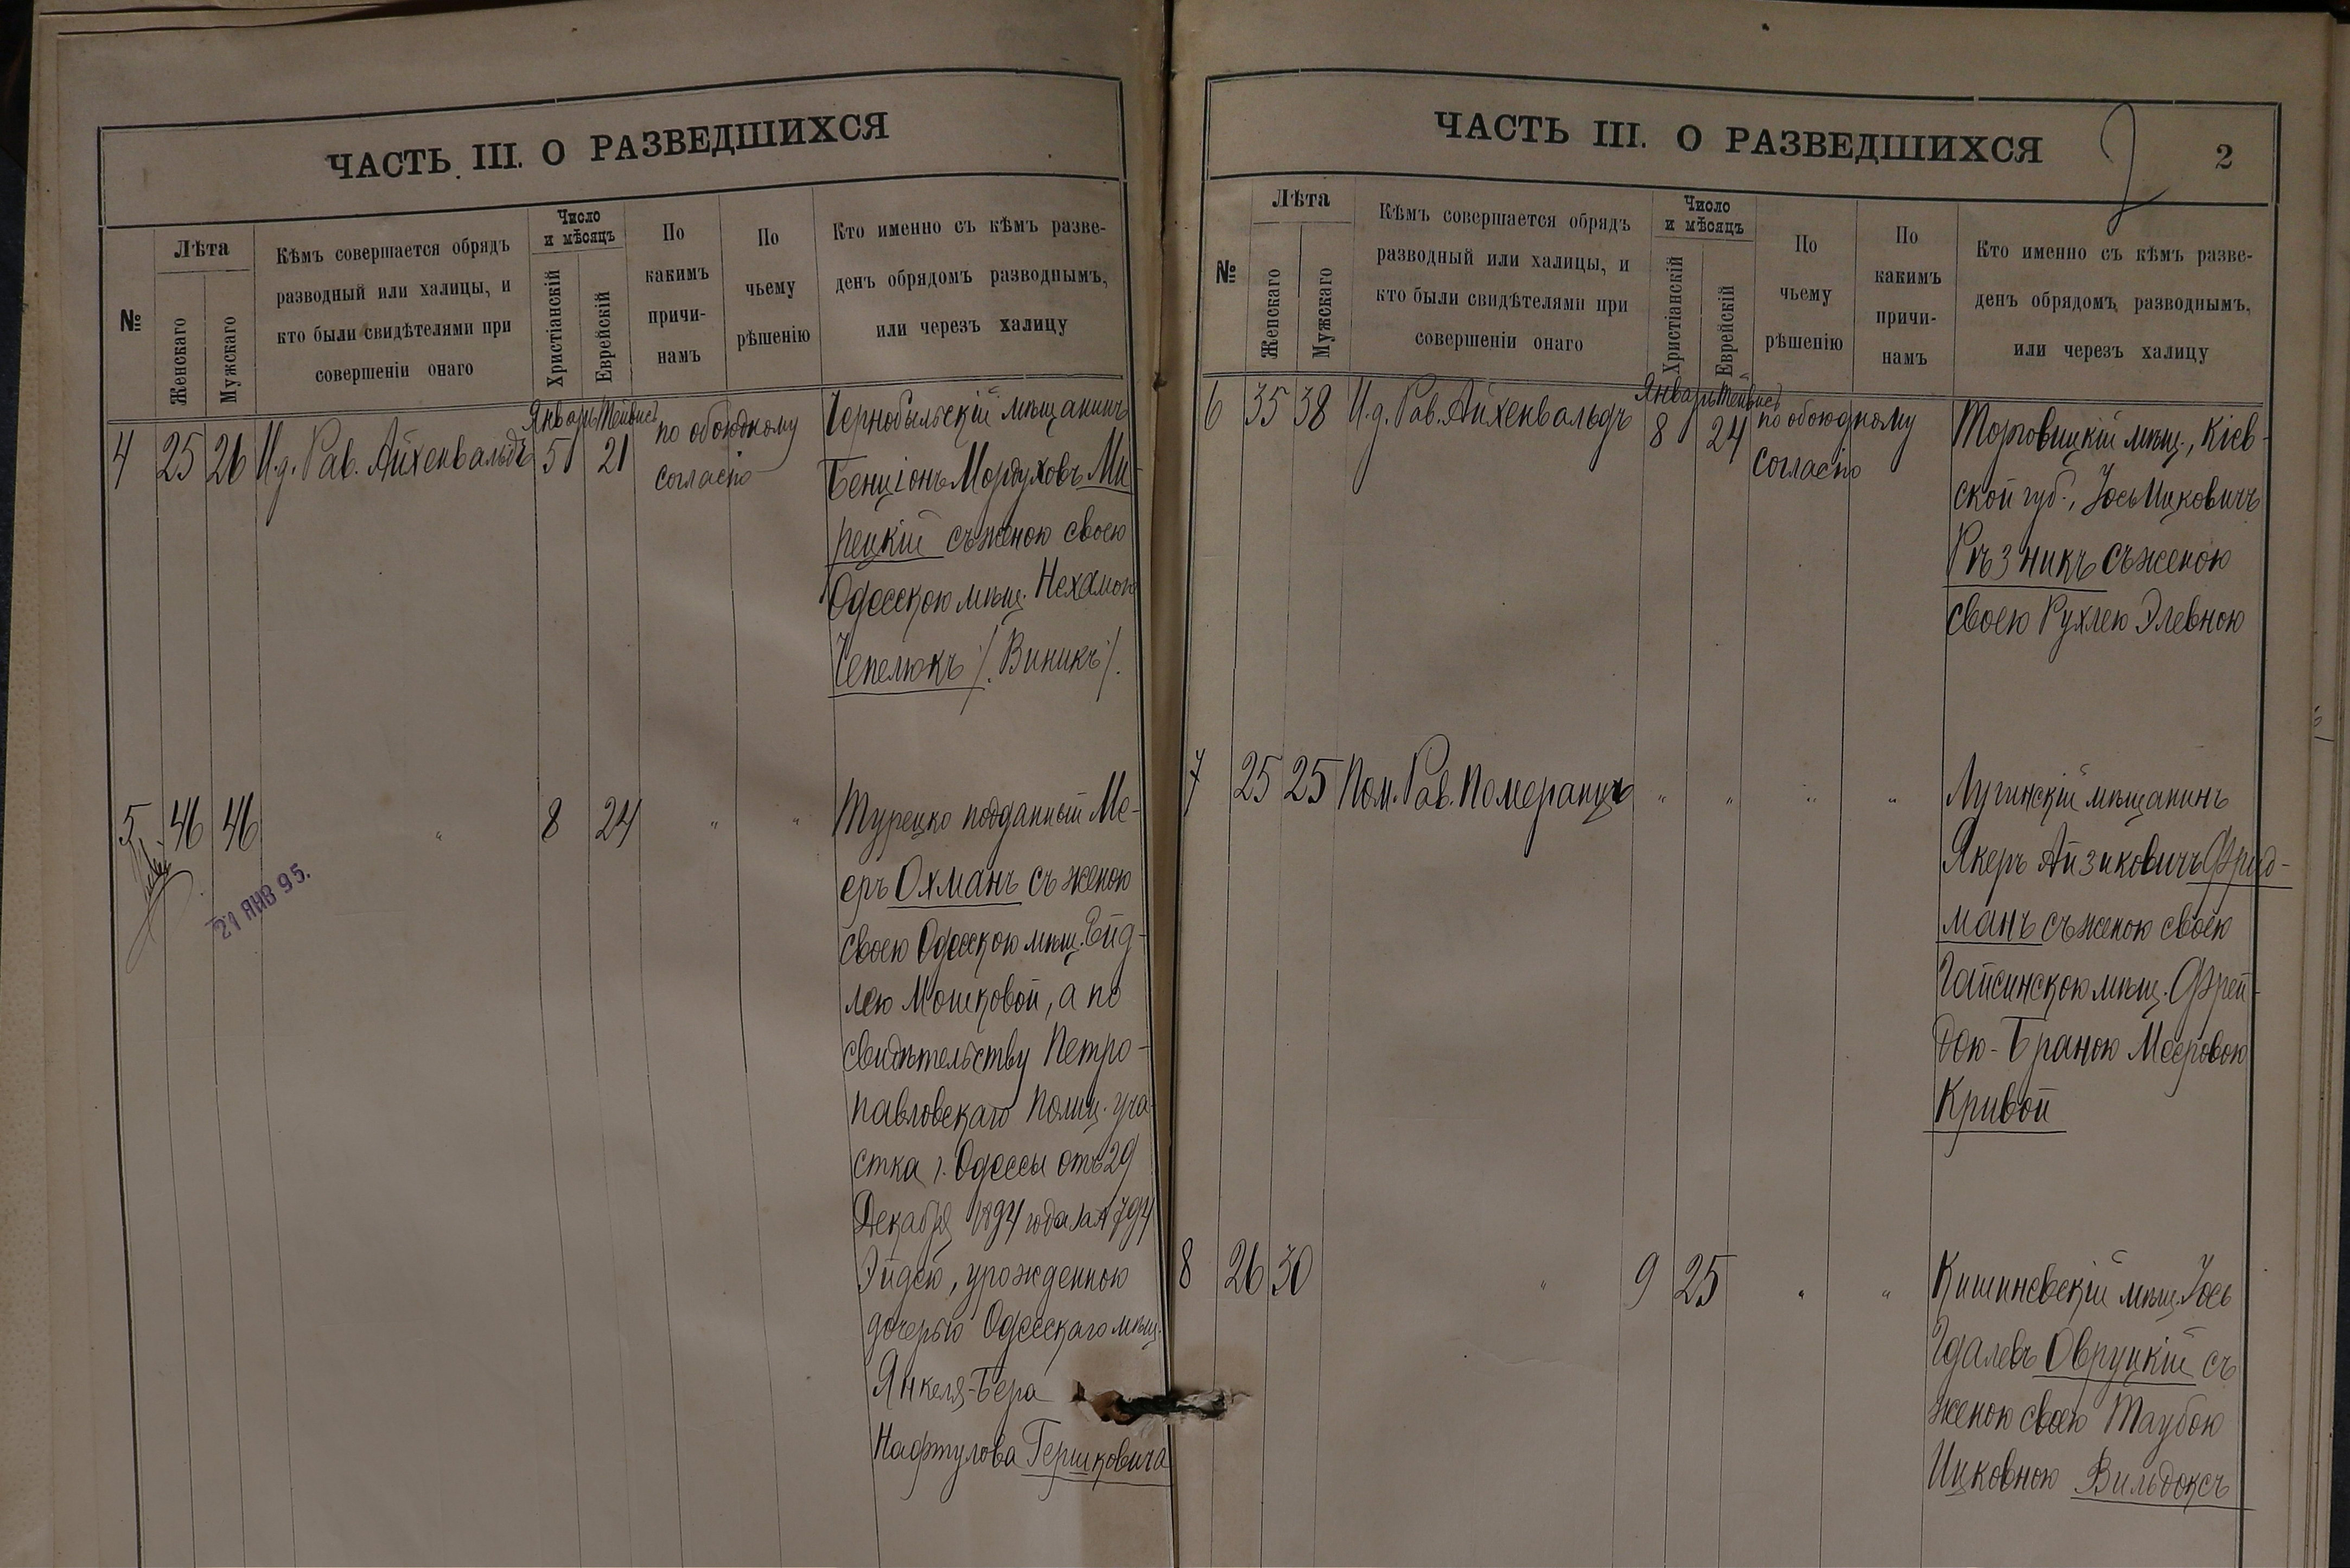 ЧАСТЬ III. О РАЗВЕДШИХСЯ
№
Лѣта
Женскаго
Мужскаго
Кѣмъ совершается обрядъ
разводный или халицы, и
кто были свидѣтелями при
совершеніи онаго
Число
и мѣсяцъ
Христіанскій
Еврейскій
По
какимъ
причи-
намъ
По
чьему
рѣшенію
Кто именно съ кѣмъ разве-
денъ обрядомъ разводнымъ,
или черезъ халицу
Январь Тейвисъ
4 25 26 И.д. Рав. Айхенвальдъ 5 21 по обоюдному
согласію
Чернобыльскій мѣщанинъ
Бенціонъ Мордуховъ Ми-
рецкій съ женою своею
Одесскою мѣщ. Нехамою
Чепелюкъ /. Виникъ /.
5 46 46 " 8 24 " "
21 ЯНВ 95.
Турецко подданный Ме-
еръ Охманъ съ женою
своею Одесскою мѣщ. Ейд-
лею Мошковой, а по
свидѣтельству Петро-
павловскаго Полиц. уча-
стка г. Одессы отъ 29
Декабря 1894 года за № 794
Эйдею, урожденною
дочерью Одесскаго мѣщ.
Янкеля-Бера
Нафтулова Гершковича
ЧАСТЬ III. О РАЗВЕДШИХСЯ
2
2
№
Лѣта
Женскаго
Мужскаго
Кѣмъ совершается обрядъ
разводный или халицы, и
кто были свидѣтелями при
совершеніи онаго
Число
и мѣсяцъ
Христіанскій
Еврейскій
По
чьему
рѣшенію
По
какимъ
причи-
намъ
Кто именно съ кѣмъ разве-
денъ обрядомъ разводнымъ,
или черезъ халицу
Январь Тейвисъ
6 35 38 И.д. Рав. Айхенвальдъ 8 24 по обоюдному
согласію
Торговицкій мѣщ., Кіев-
ской губ., Іось Ицковичъ
Рѣзникъ съ женою
своею Рухлею Элевною
7 25 25 Пом. Рав. Померанцъ " " " "
Лугинскій мѣщанинъ
Якеръ Айзиковичъ Фрид-
манъ съ женою своею
Гайсинскою мѣщ. Фрей-
дою-Браною Мееровою
Кривой
8 26 30 " 9 25 " "
Кишиневскій мѣщ. Іось
Гдалевъ Овруцкій съ
женою своею Таубою
Ицковною Вильдоксъ